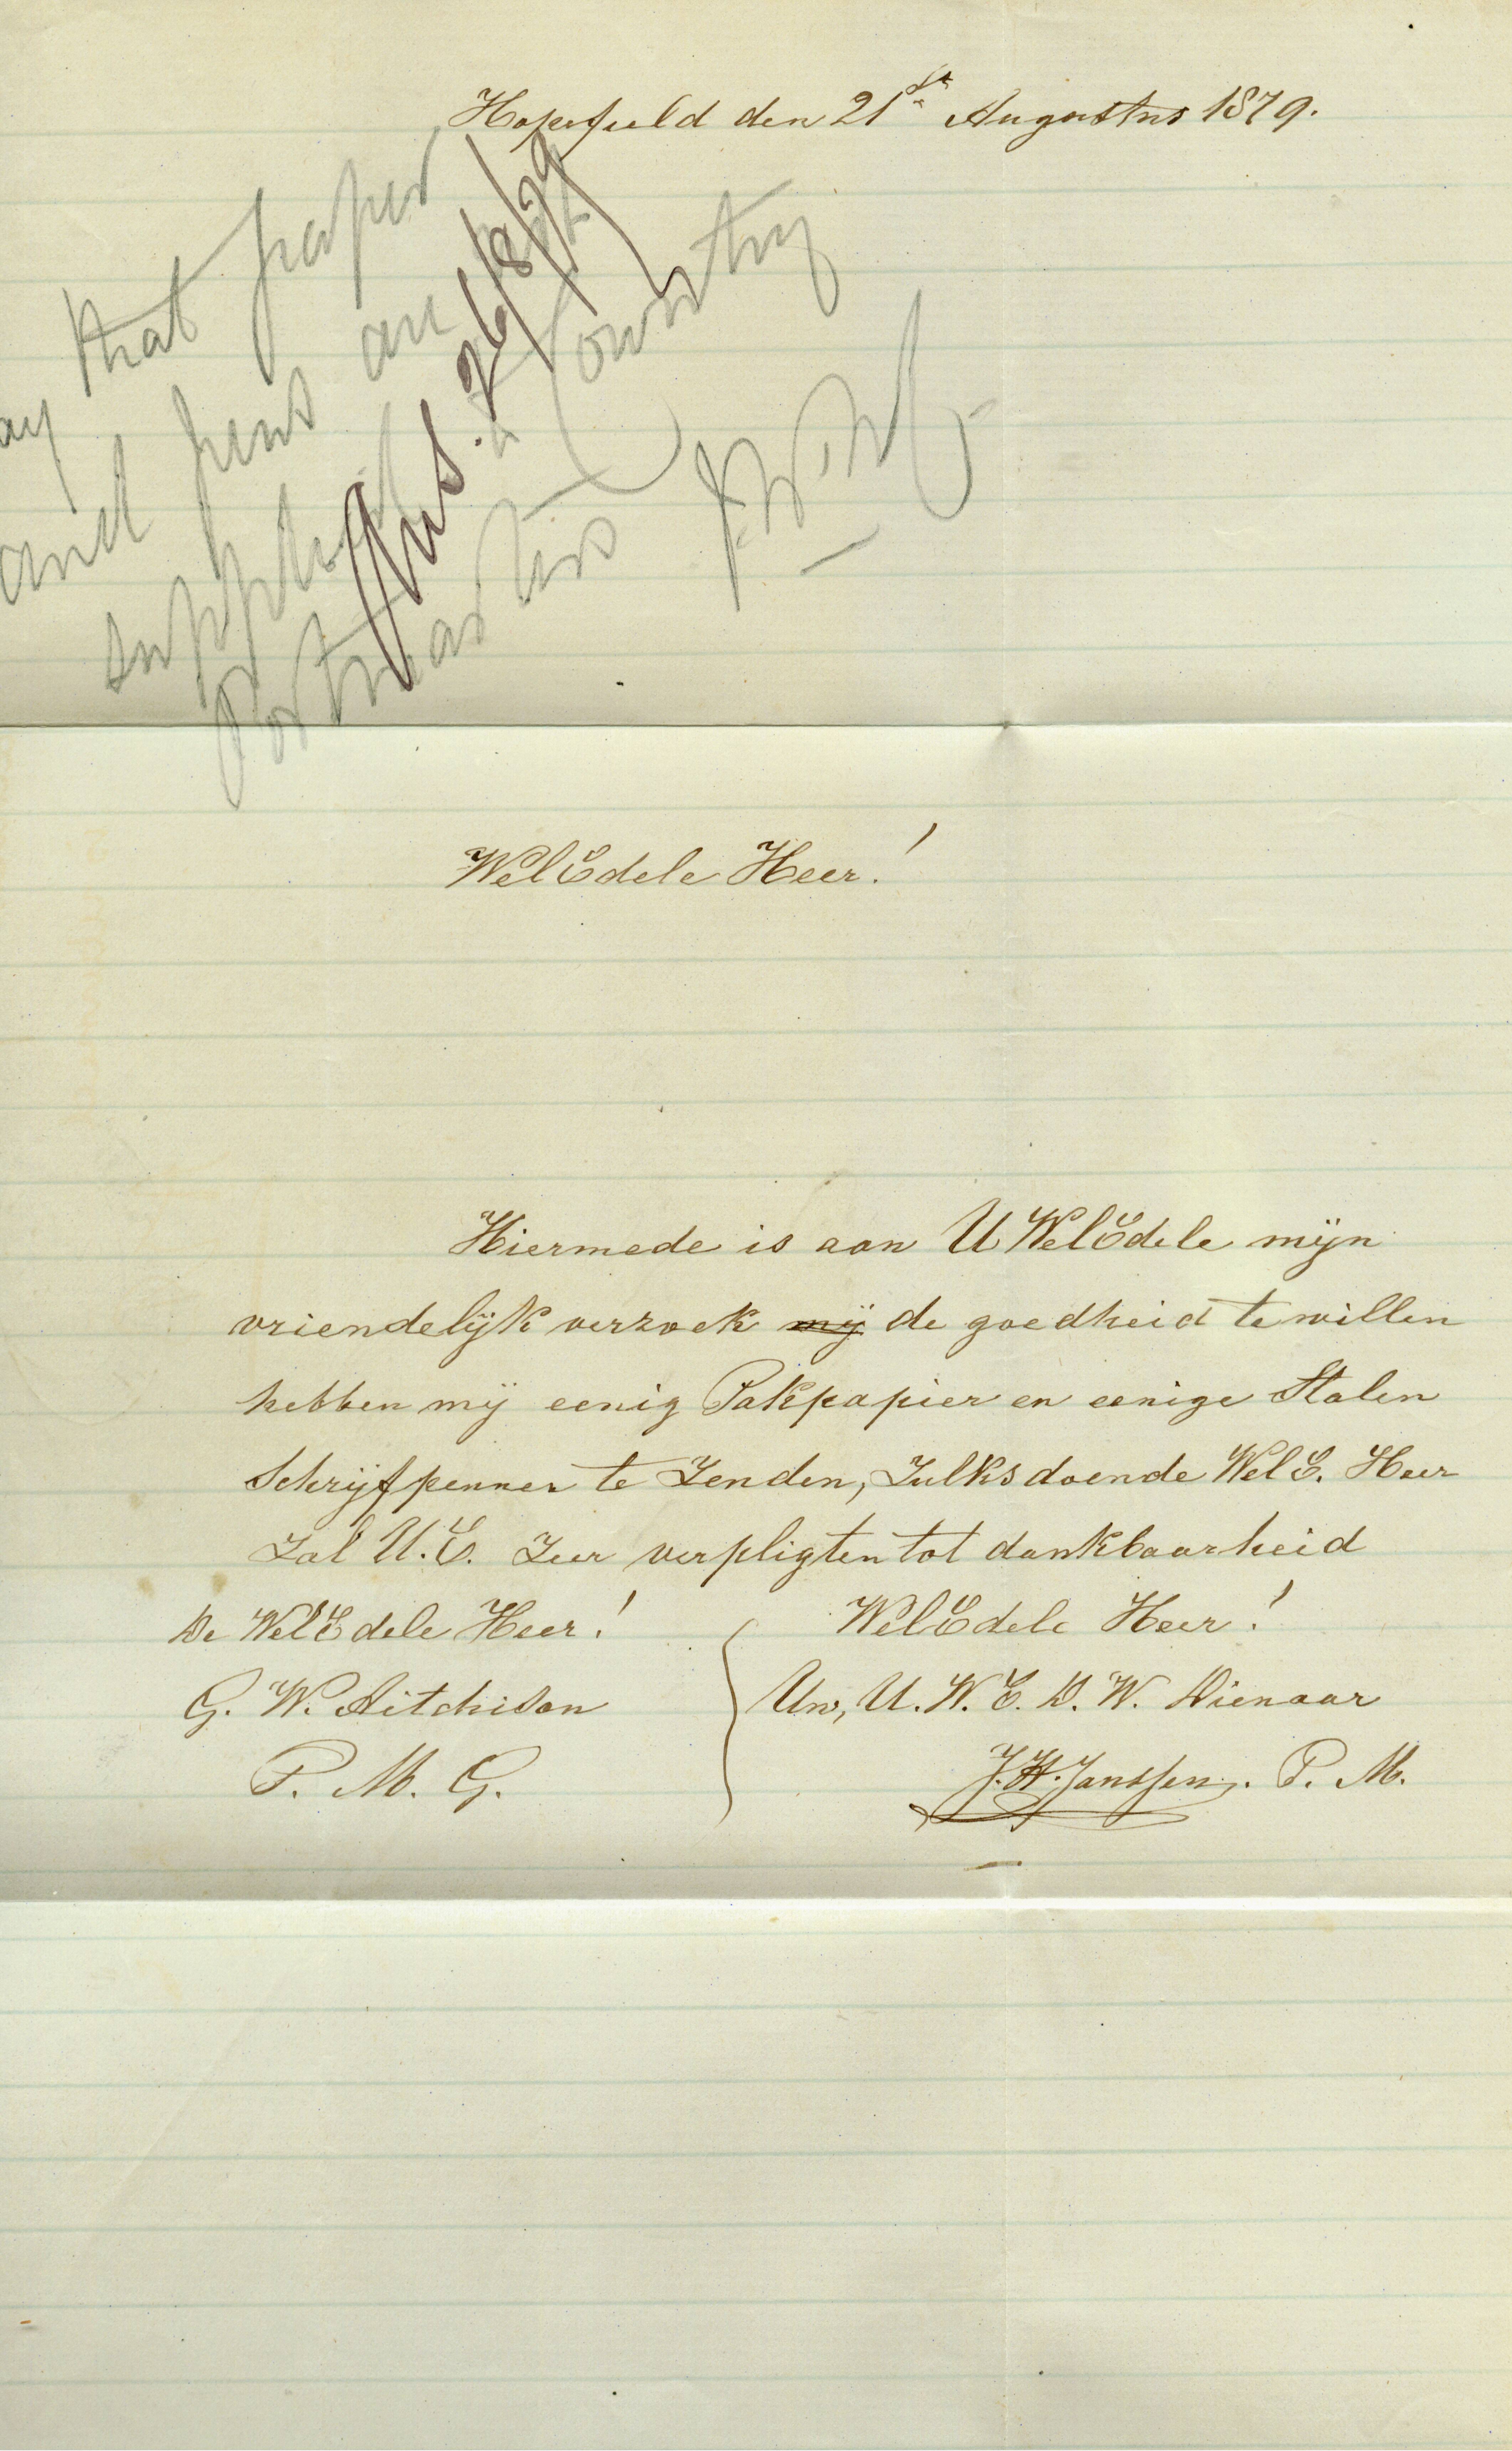 Hopefield den 21ste Augustus 1879.
that paper
and pens are not
supplied to Country
Postmasters
Ans. 26/8/79
WelEdele Heer!
Hiermede is aan U WelEdele mijn
vriendelijk verzoek mij de goedheid te willen
hebben mij eenig Pakpapier en eenige Stalen
Schrijfpennen te Zenden, Zulks doende WelE. Heer
Zal U.E. Zeer verpligten tot dankbaarheid
De WelEdele Heer!
G. W. Aitchison
P. M. G.
WelEdele Heer!
Uw, U. W. E. D. W. Dienaar
J. H. Janssen. P. M.